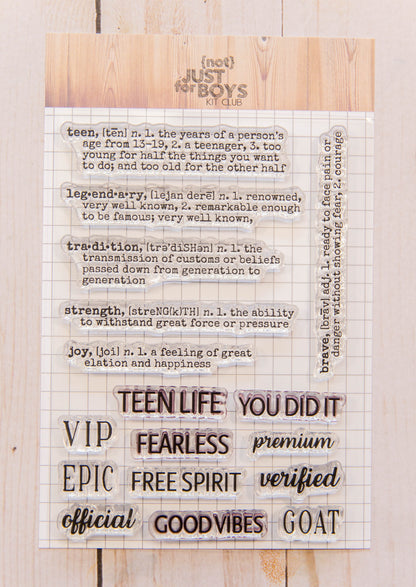 {not}
JUST
for BOYS
KIT CLUB
teen, [tēn] n. 1. the years of a person's
age from 13-19, 2. a teenager, 3. too
young for half the things you want
to do; and too old for the other half
leg•end•a•ry, [lejan derē] n. 1. renowned,
very well known, 2. remarkable enough
to be famous; very well known,
tra•di•tion, [trə'diSHən] n. 1. the
transmission of customs or beliefs
passed down from generation to
generation
strength, [streNG(k)TH] n. 1. the ability
to withstand great force or pressure
joy, [joi] n. 1. a feeling of great
elation and happiness
brave, [brāv] adj. 1. ready to face pain or
danger without showing fear, 2. courage
TEEN LIFE YOU DID IT
VIP FEARLESS premium
EPIC FREE SPIRIT verified
official GOOD VIBES GOAT